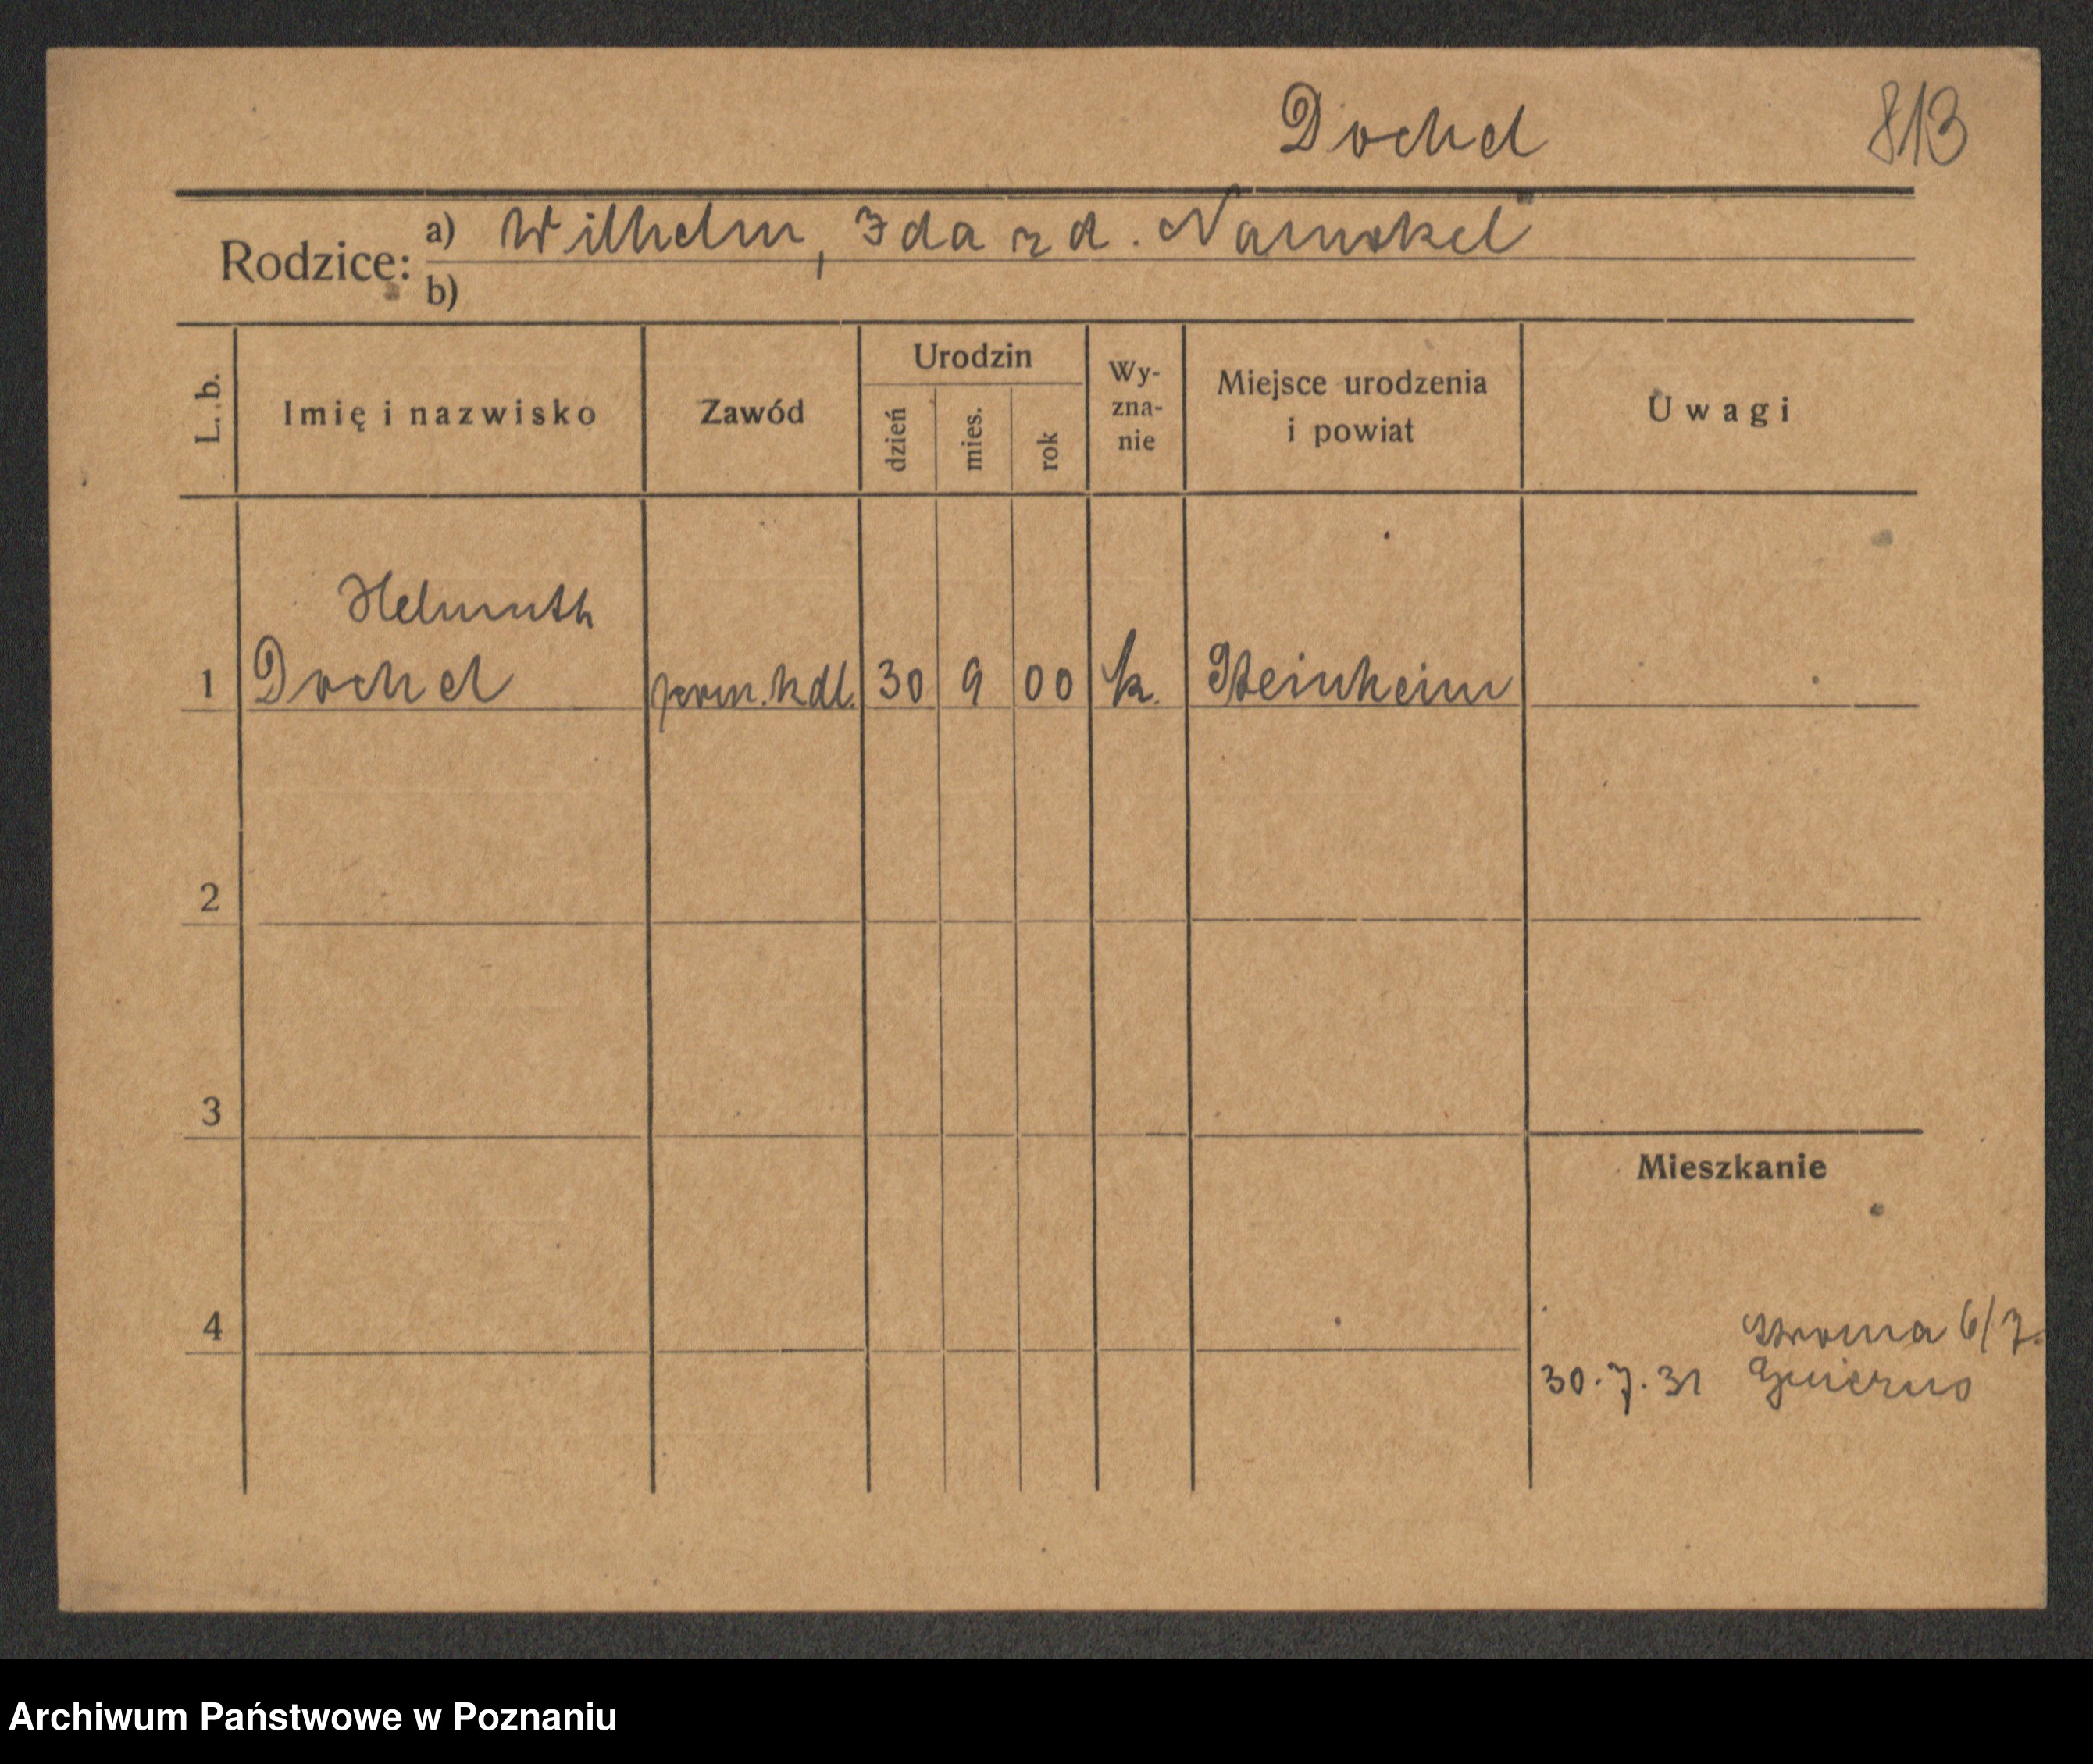 Dochel 813
Rodzice: a) Wilhelm, Ida zd.
b)
L. b. Imię i nazwisko Zawód Urodzin dzień mies. rok Wy-zna-nie Miejsce urodzenia i powiat Uwagi
Helmuth
1 Dochel pom. hdl. 30 9 00 k. Steinheim
2
3
Mieszkanie
4
Stroma 6/7.
30.7.31 Gniezno
Archiwum Państwowe w Poznaniu